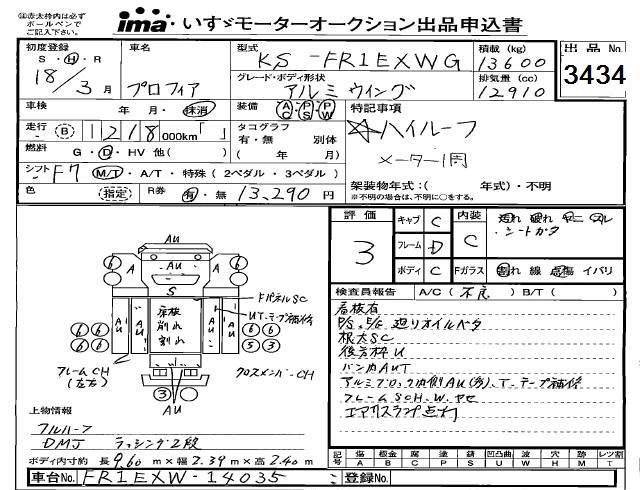 ㊟赤太枠内は必ずボールペンでご記入下さい。
ima いすゞモーターオークション出品申込書
初度登録 S・H・R 18/3月
車名 プロフィア
型式 KS-FR1EXWG
グレード・ボディ形状 アルミウイング
積載 (kg) 13600
排気量 (cc) 12910
出品No. 3434
車検 年・月・抹消
装備 AC PS PW
特記事項
走行 B 1218 000km「 」
タコグラフ 有・無 別体
( 年 月)
☆ハイルーフ
メーター1周
燃料 G・D・HV 他( )
シフト F7 M/T・A/T・特殊 (2ペダル・3ペダル)
架装物年式:( 年式)・不明
※不明の場合は、不明に○をする。
色 (指定) R券 有・無 13,290円
評価 3
キャブ C
フレーム D
ボディ C
内装 C
シートガタ
Fガラス 割れ 線 点傷 イバリ
検査員報告 A/C (不良) B/T ( )
看板有
P/S, E/G 廻りオイルベタ
根太SC
後方枠U
バンパAUT
アルミブロック内側AU(多)、T.テープ補修
フレームSCH.W.ヤセ
エアサスランプ点灯
AU
6 A AU A 6
S
FパネルSC
UT.テープ補修
AU AU AU AU
床板
削れ
割れ
6 6 6 6
6 6 5 3
フレームCH
(左右)
クロスメンバーCH
3
AU
上物情報
フルハーフ
DMJ ラッシング2段
ボディ内寸約 長 9.60 m×幅 2.39 m×高 2.40 m
記号 傷A 板金B 腐C 塗P 錆S 凹凸曲U 波W 穴H 跡M レツ割T
車台No. FR1EXW-14035
登録No.